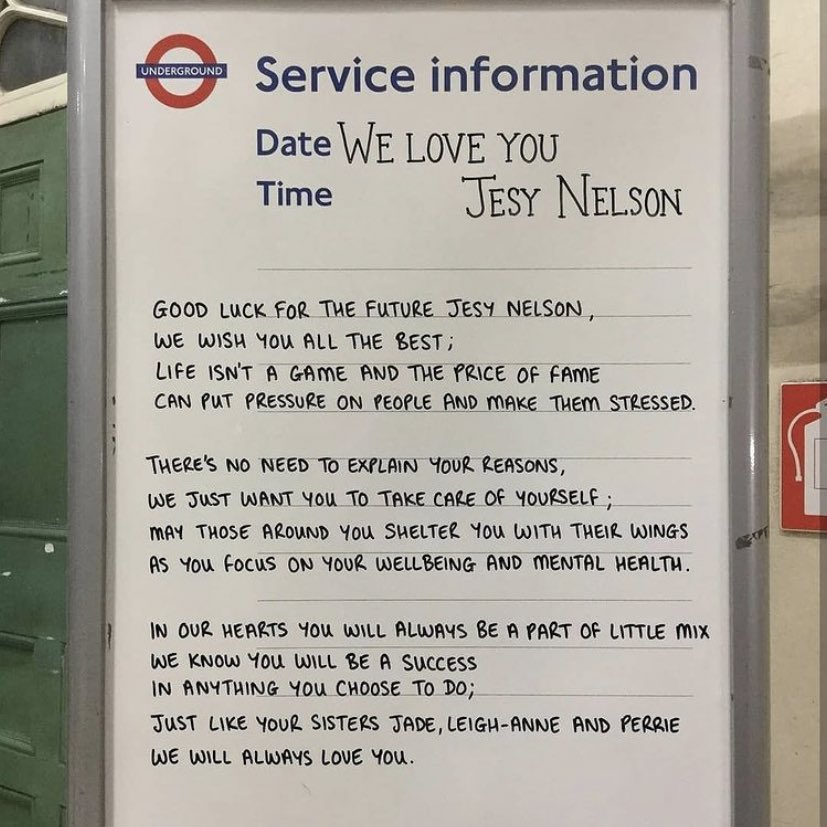 UNDERGROUND
Service information
Date WE LOVE YOU
Time JESY NELSON
GOOD LUCK FOR THE FUTURE JESY NELSON,
WE WISH YOU ALL THE BEST;
LIFE ISN'T A GAME AND THE PRICE OF FAME
CAN PUT PRESSURE ON PEOPLE AND MAKE THEM STRESSED.
THERE'S NO NEED TO EXPLAIN YOUR REASONS,
WE JUST WANT YOU TO TAKE CARE OF YOURSELF;
MAY THOSE AROUND YOU SHELTER YOU WITH THEIR WINGS
AS YOU FOCUS ON YOUR WELLBEING AND MENTAL HEALTH.
IN OUR HEARTS YOU WILL ALWAYS BE A PART OF LITTLE MIX
WE KNOW YOU WILL BE A SUCCESS
IN ANYTHING YOU CHOOSE TO DO;
JUST LIKE YOUR SISTERS JADE, LEIGH-ANNE AND PERRIE
WE WILL ALWAYS LOVE YOU.